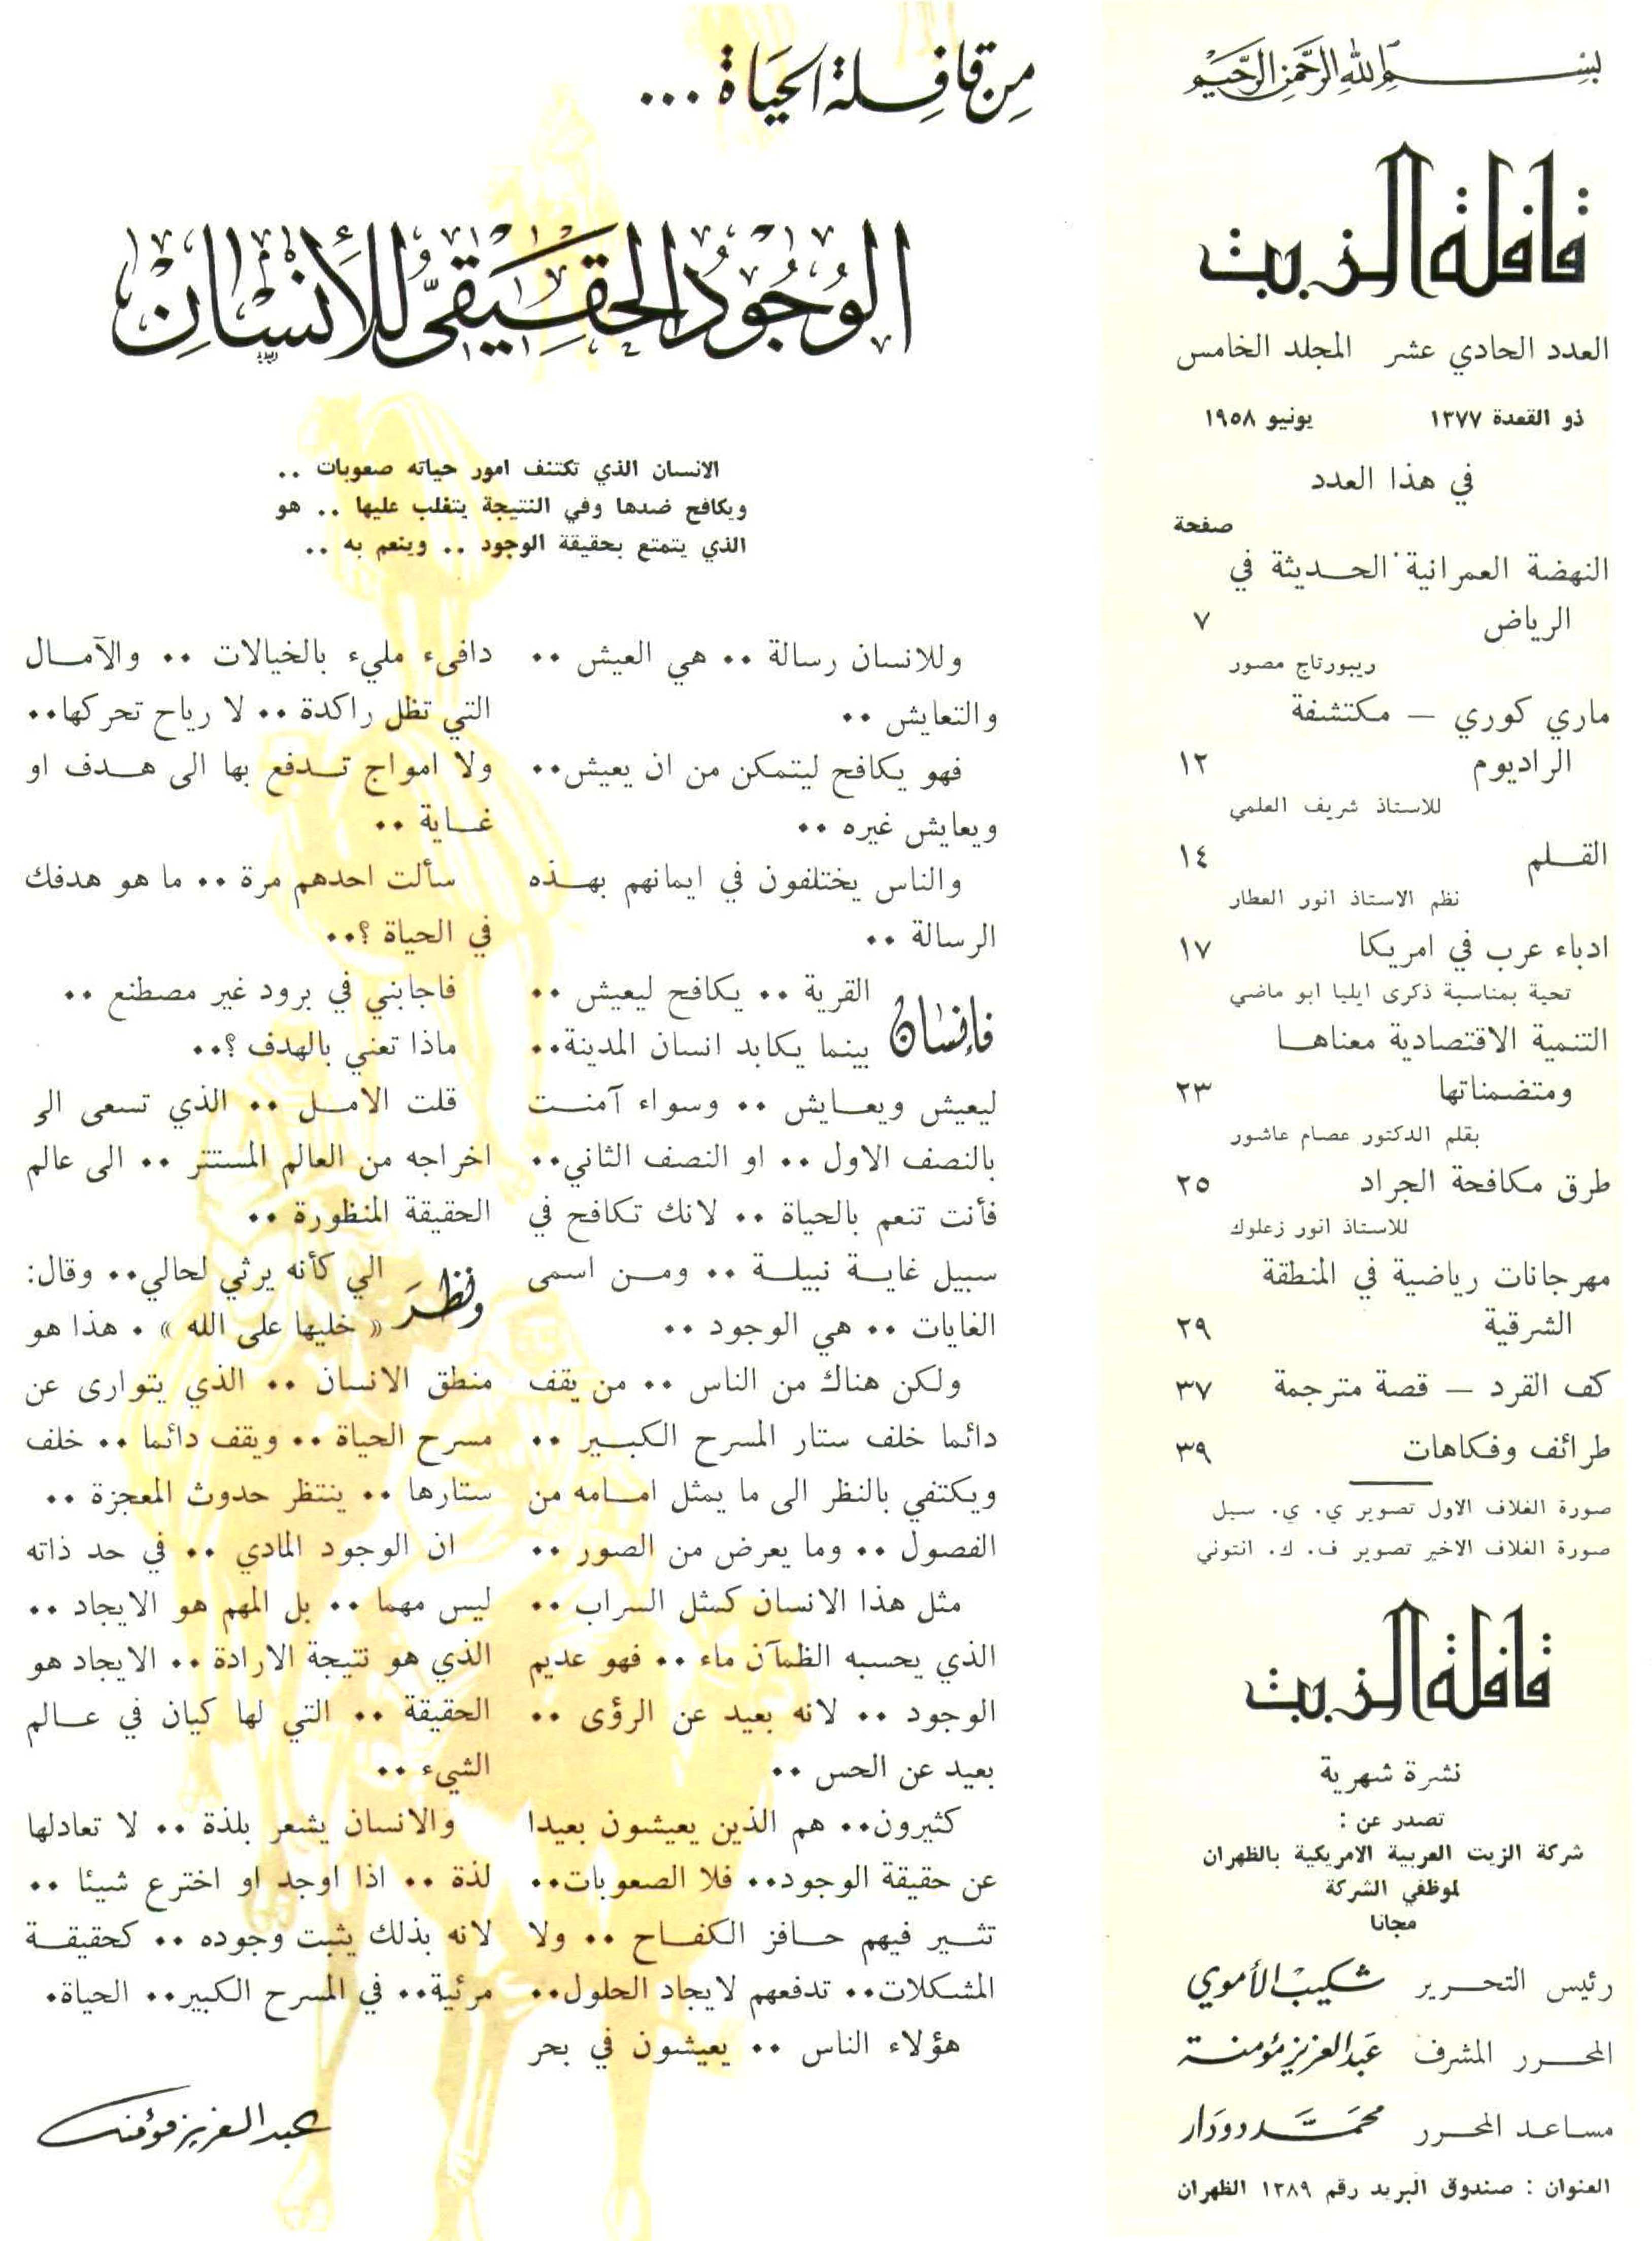 بسم الله الرحمن الرحيم
قافلة الزيت
العدد الحادي عشر المجلد الخامس
ذو القعدة ١٣٧٧ يونيو ١٩٥٨
في هذا العدد
صفحة
النهضة العمرانية الحديثة في
الرياض ٧
ريبورتاج مصور
ماري كوري – مكتشفة
الراديوم ١٢
للاستاذ شريف العلمي
القلم ١٤
نظم الاستاذ انور العطار
ادباء عرب في امريكا ١٧
تحية بمناسبة ذكرى ايليا ابو ماضي
التنمية الاقتصادية معناها
ومتضمناتها ٢٣
بقلم الدكتور عصام عاشور
طرق مكافحة الجراد ٢٥
للاستاذ انور زعلوك
مهرجانات رياضية في المنطقة
الشرقية ٢٩
كف القرد – قصة مترجمة ٣٧
طرائف وفكاهات ٣٩
صورة الغلاف الاول تصوير ي. ي. سيل
صورة الغلاف الاخير تصوير ف. ك. انتوني
قافلة الزيت
نشرة شهرية
تصدر عن :
شركة الزيت العربية الامريكية بالظهران
لموظفي الشركة
مجانا
رئيس التحرير شكيب الأموي
المحرر المشرف عبد العزيز مؤمنة
مساعد المحرر محمد دودار
العنوان : صندوق البريد رقم ١٣٨٩ الظهران
من قافلة الحياة ...
الوُجُودُ الحَقيقيُّ للأنسَانِ
الانسان الذي تكتنف امور حياته صعوبات ..
ويكافح ضدها وفي النتيجة يتغلب عليها .. هو
الذي يتمتع بحقيقة الوجود .. وينعم به ..
وللانسان رسالة .. هي العيش ..
والتعايش ..
فهو يكافح ليتمكن من ان يعيش..
ويعايش غيره ..
والناس يختلفون في ايمانهم بهذه
الرسالة ..
فإنسان القرية .. يكافح ليعيش ..
بينما يكابد انسان المدينة..
ليعيش ويعايش .. وسواء آمنت
بالنصف الاول .. او النصف الثاني..
فأنت تنعم بالحياة .. لانك تكافح في
سبيل غاية نبيلة .. ومن اسمى
الغايات .. هي الوجود ..
ولكن هناك من الناس .. من يقف
دائما خلف ستار المسرح الكبير ..
ويكتفي بالنظر الى ما يمثل امامه من
الفصول .. وما يعرض من الصور ..
مثل هذا الانسان كمثل السراب ..
الذي يحسبه الظمآن ماء .. فهو عديم
الوجود .. لانه بعيد عن الرؤى ..
بعيد عن الحس ..
كثيرون.. هم الذين يعيشون بعيدا
عن حقيقة الوجود.. فلا الصعوبات..
تثير فيهم حافز الكفاح .. ولا
المشكلات.. تدفعهم لايجاد الحلول..
هؤلاء الناس .. يعيشون في بحر
دافىء مليء بالخيالات .. والآمال
التي تظل راكدة .. لا رياح تحركها..
ولا امواج تدفع بها الى هدف او
غاية ..
سألت احدهم مرة .. ما هو هدفك
في الحياة ؟..
فاجابني في برود غير مصطنع ..
ماذا تعني بالهدف ؟..
قلت الامل .. الذي تسعى الى
اخراجه من العالم المستتر .. الى عالم
الحقيقة المنظورة ..
ونظرَ الي كأنه يرثي لحالي.. وقال:
« خليها على الله » . هذا هو
منطق الانسان .. الذي يتوارى عن
مسرح الحياة .. ويقف دائما .. خلف
ستارها .. ينتظر حدوث المعجزة ..
ان الوجود المادي .. في حد ذاته
ليس مهما .. بل المهم هو الايجاد ..
الذي هو نتيجة الارادة .. الايجاد هو
الحقيقة .. التي لها كيان في عالم
الشيء ..
والانسان يشعر بلذة .. لا تعادلها
لذة .. اذا اوجد او اخترع شيئا ..
لانه بذلك يثبت وجوده .. كحقيقة
مرئية.. في المسرح الكبير.. الحياة.
عبد العزيز مؤمنه